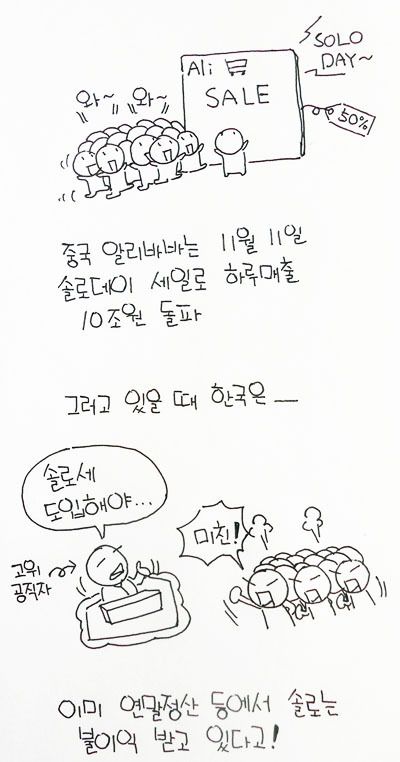 SOLO
DAY~
Ali
SALE
50%
와~ 와~
중국 알리바바는 11월 11일
솔로데이 세일로 하루매출
10조원 돌파
그러고 있을 때 한국은 —
솔로세
도입해야...
고위
공직자
미친!
이미 연말정산 등에서 솔로는
불이익 받고 있다고!